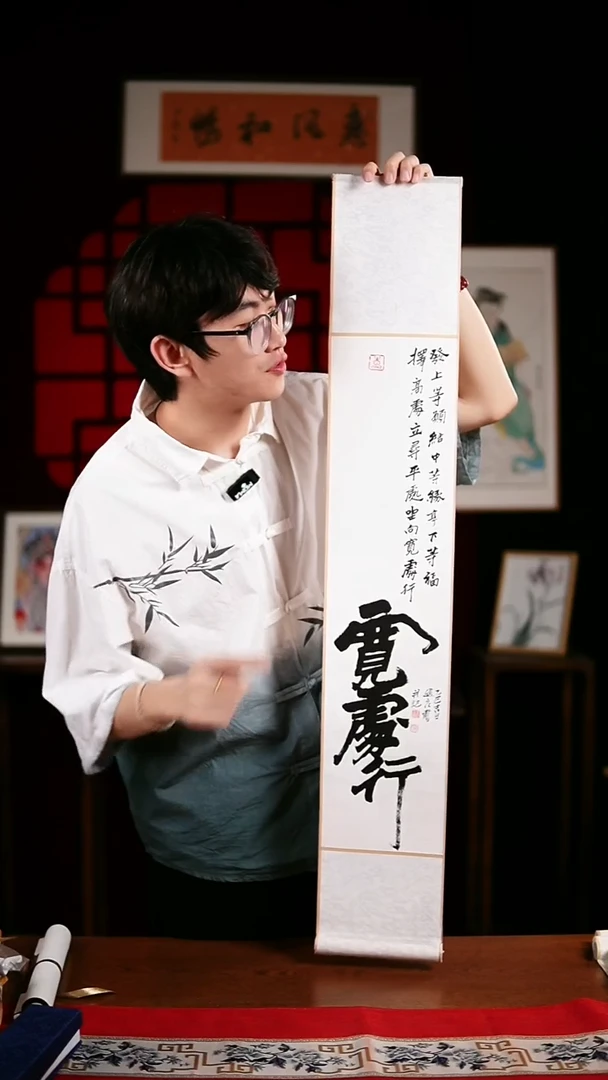 發上等願結中等緣享下等福
擇高處立尋平處坐向寬處行
寬處行